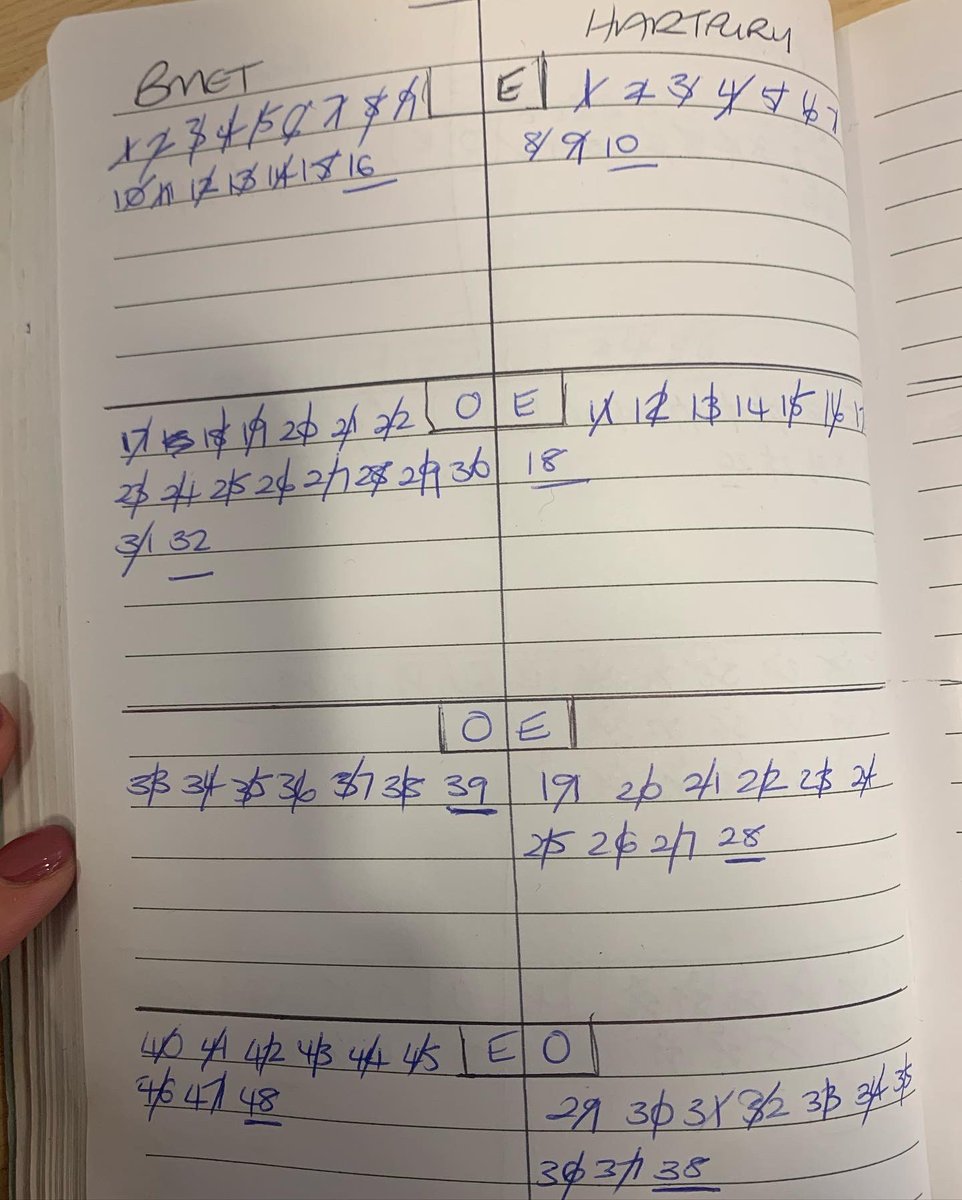 BMET HARTPURY
E
1 2 3 4 5 6 7 8 9 1 2 3 4 5 6 7
10 11 12 13 14 15 16 8 9 10
O E
17 18 19 20 21 22 11 12 13 14 15 16 17
23 24 25 26 27 28 29 30 18
31 32
O E
33 34 35 36 37 38 39 19 20 21 22 23 24
25 26 27 28
E O
40 41 42 43 44 45
46 47 48 29 30 31 32 33 34 35
36 37 38